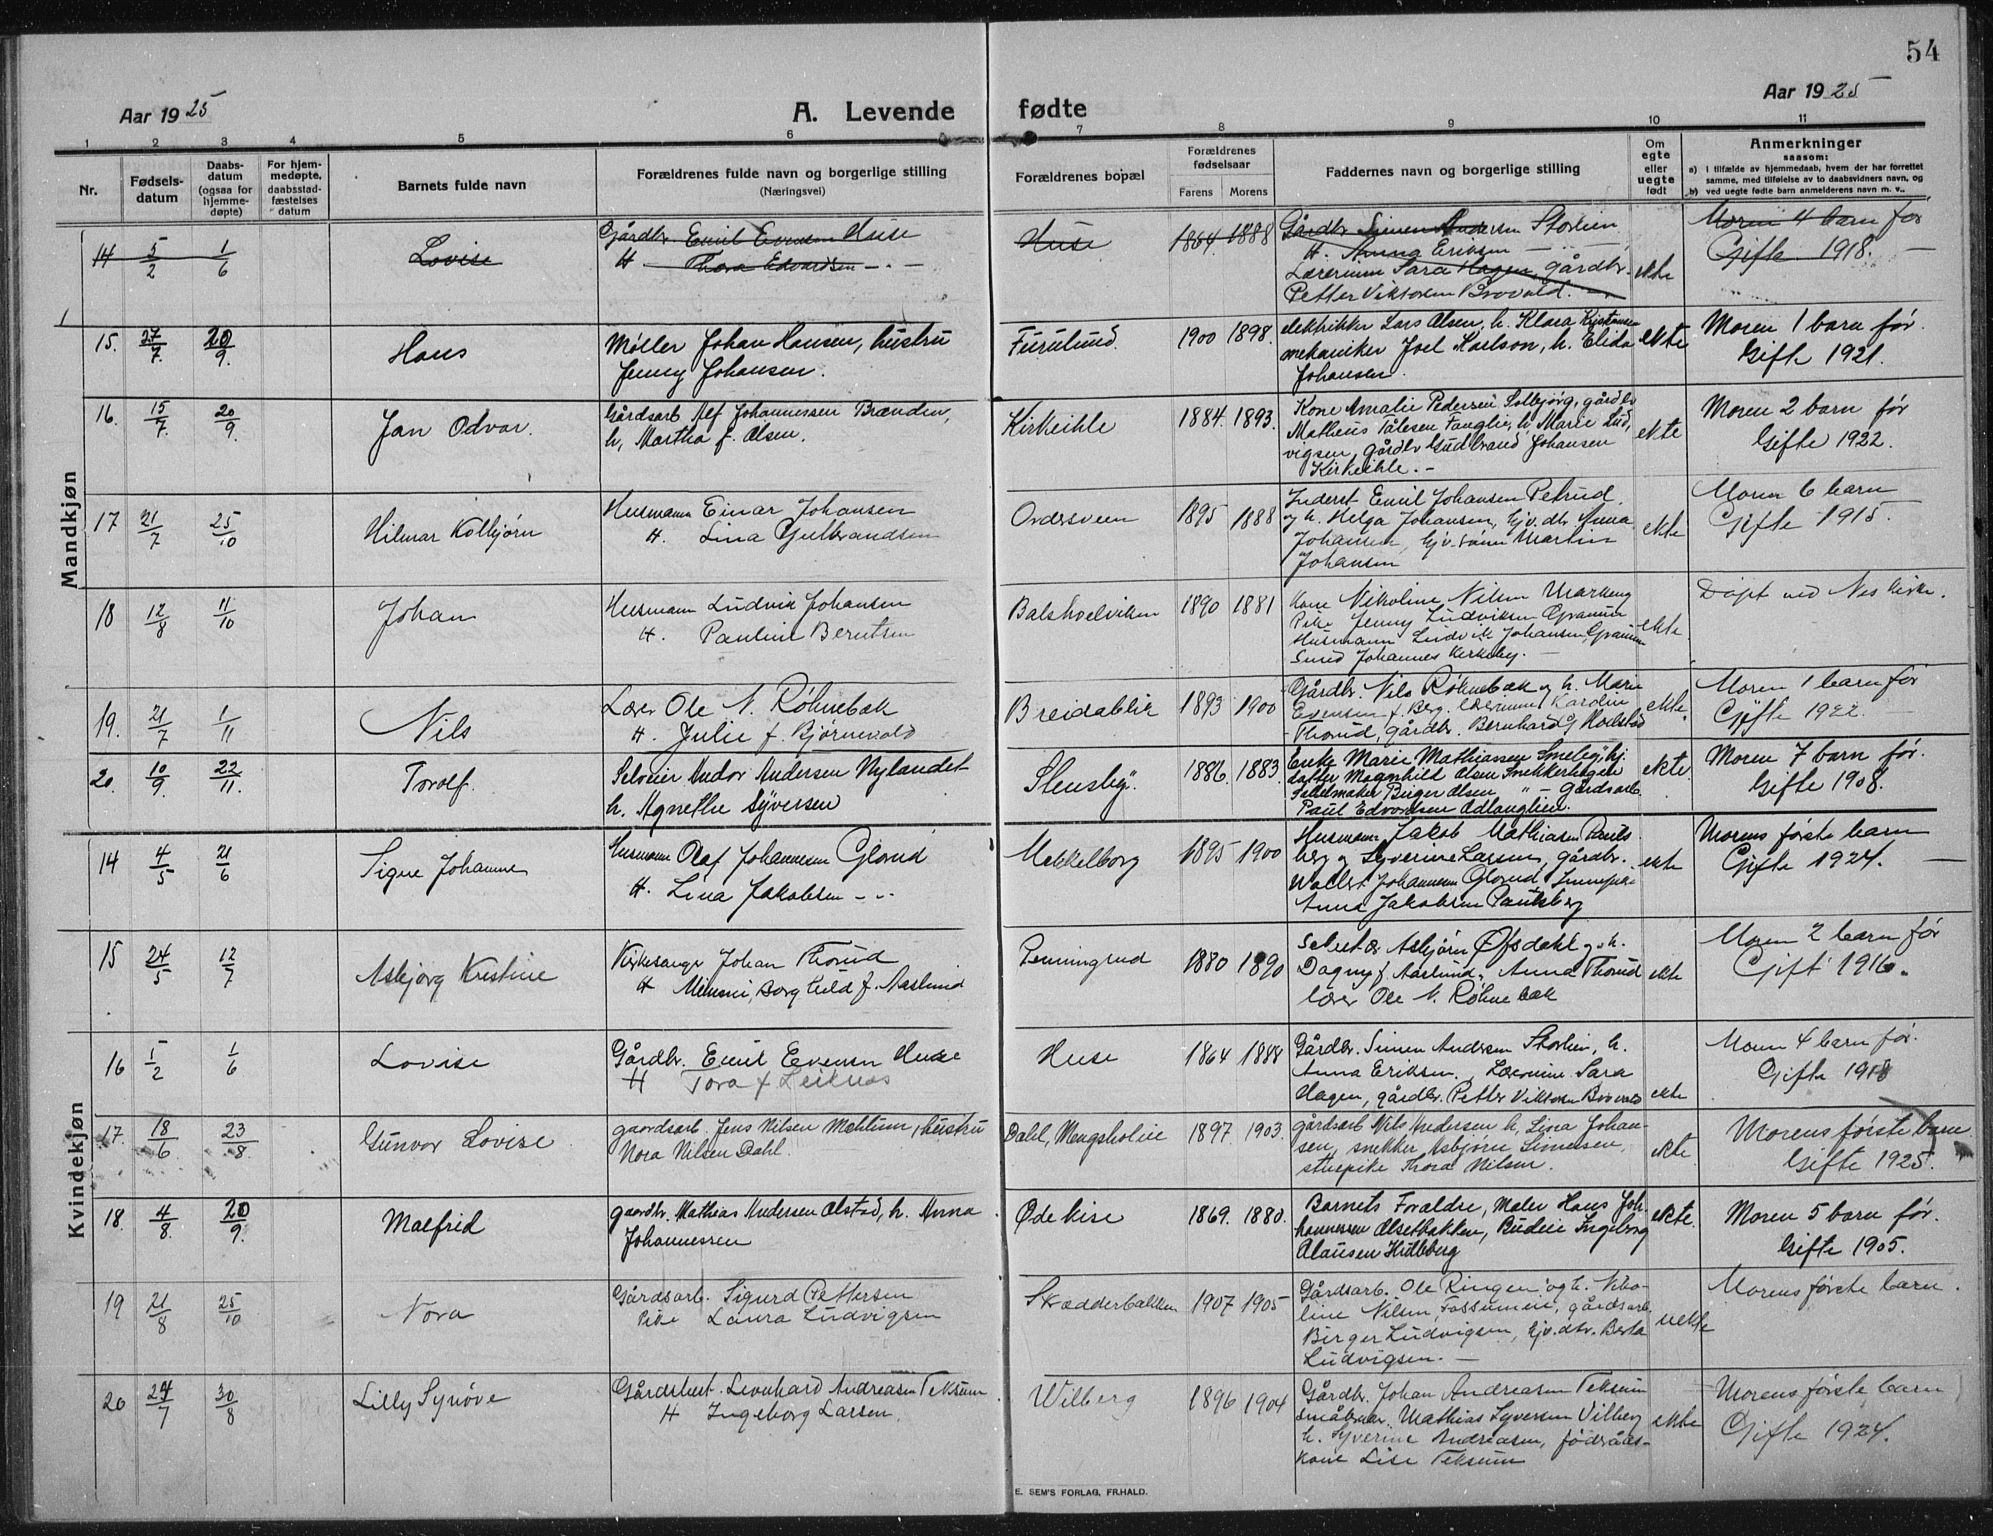 54
Aar 1925
A. Levende fødte
Aar 1925
1 2 3 4 5 6 7 8 9 10 11
Nr.
Fødsels-
datum
Daabs-
datum
(ogsaa for
hjemme-
døpte)
For hjem-
medøpte,
daabsstad-
fæstelses
datum
Barnets fulde navn
Forældrenes fulde navn og borgerlige stilling
(Næringsvei)
Forældrenes bopæl
Forældrenes
fødselsaar
Farens Morens
Faddernes navn og borgerlige stilling
Om
egte
eller
uegte
født
Anmerkninger
saasom:
a) I tilfælde av hjemmedaab, hvem der har forrettet
samme, med tilføielse av to daabsvidners navn, og
b) ved uegte fødte barn anmelderens navn m. v..
Mandkjøn
14 5/2 1/6 Lovise
Gårdbr. Emil Evensen Huse
H Thora Edvardsen - -
Huse 1864 1888
Gårdbr Simen Andersen Storlien
H. Anna Eriksen —
Lærerinne Sara Hagen, gårdbr.
Petter Viktorsen Brovold. —
ekte
Moren 4 barn før
Gifte 1918. —
15. 27/7 20/9. Hans
Møller Johan Hansen, hustru
Jenny Johansen.
Furulund 1900 1898.
elektriker Lars Olsen, h. Klara Kristiansen
mekaniker Joel Karlson, h. Elida
Johansen.
ekte
Moren 1 barn før.
Gifte 1921.
16. 15/7. 20/9. Jan Odvar.
Gårdsarb Alf Johannessen Brænden,
h, Martha f. Olsen.
Kirkeihle 1884. 1893.
Kone Amalie Pedersen Solbjørg, gårdbr
Matheus Tålesen Fanglie, h. Marie Lud,
vigsen, gårdbr Gudbrand Johansen
Kirkeihle. -
ekte
Moren 2 barn før
Gifte 1922.
17 21/7 25/10 Hilmar Kolbjørn
Husmann Einar Johansen
H. Lina Gulbrandsen
1895 1888
Inderst Emil Johansen Petrud
og h. Helga Johansen, hjv. dtr Anna
Johansen, hjv. sønn Martin
Johansen
ekte
Moren 6 barn
Gifte 1915.
18 12/8 11/10 Johan
Husmann Ludvik Johansen
H. Pauline Berntsen
Balshoelviken 1890 1881
Kone Nikoline Nilsen
Pike Jenny Ludviksen Granum
Husmann Ludvik Johansen, Granum
Smed Johannes Kirkeby. —
ekte.
Døpt ved Nes kirke.
19. 21/7 1/11 Nils
Lærer Ole N. Røhnebæk
H. Julie f. Bjørnevold
Breidablik 1893 1900
Gårdbr. Nils Røhnebæk og h. Marie
Evensen f. Berg. Lærerinne Karoline
Thorud, gårdbr. Bernhard
ekte.
Moren 1 barn før
Gifte 1922. —
20. 10/9. 22/11. Torolf.
Selveier Andor Andersen Nylandet
h. Agnethe Syversen
Stensby. 1886. 1883.
Enke Marie Mathiassen Smeby, hj.
datter Magnhild Olsen Snekkerhagen
Sadelmaker Birger Olsen " — gårdsarb.
Paul Edvardsen Odlanglien.
ekte.
Moren 7 barn før.
Gifte 1908.
Kvindekjøn
14 4/5 21/6 Signe Johanne
Husmann Olaf Johannesen Glorud
H. Lina Jakobsen - -
Mekkelborg 1895 1900
Husmann Jakob Mathiasen Pauls
berg og Syverine Larsen, gårdbr.
Johannesen Glorud,
Anna Jakobsen Paulsberg
ekte
Morens første barn
Gifte 1924. —
15 24/5 12/7 Asbjørg Kristine
Kirkesanger Johan Thorud
H Mimmi, Borghild f. Aaslund
Penningrud 1880 1890
Asbjørn Øfsdahl og h.
Dagny f. Aaslund, Anna Thorud
lærer Ole N. Røhnebæk
ekte
Moren 2 barn før
Gift 1916.
16 5/2 1/6 Lovise
Gårdbr. Emil Evensen Huse
H Tora f Leiknes
Huse 1864 1888
Gårdbr. Simen Andersen Storlien, h.
Anna Eriksen. Lærerinne Sara
Hagen, gårdbr. Petter Viktorsen Brovold
ekte
Moren 4 barn før.
Gifte 1918
17. 18/6 23/8. Gunvor Lovise.
gaardsarb. Jens Nilsen Mehlum, hustru
Nora Nilsen Dahl.
Dahl, Mengsholiie 1897. 1903.
gårdsarb Nils Andersen h, Lina Johan-
sen, snekker Asbjørn Simensen,
stuepike Thora Nilsen.
ekte.
Morens første barn
Gifte 1925.
18. 4/8. 20/9. Malfrid
gaardbr. Mathias Andersen Alstad, h. Anna
Johannessen
Ødekise 1869. 1880.
Barnets Foraldre, Maler Hans Joh-
hannessen Alsetbakken, Budeie Ingeborg
Clausen Hulleberg
ekte.
Moren 5 barn før.
Gifte 1905.
19 21/8 25/10 Nora
Gårdsarb. Sigurd Pettersen
Pike Laura Ludvigsen
Skredderbakken 1907 1905
Gårdsarb. Ole Ringen og h. Niko-
line Nilsen, Fossumeie, gårdsarb.
Birger Ludvigsen, hjv. dtr. Berta
Ludvigsen. —
uekte
Morens første barn.
20 24/7 30/8 Lilly Synøve
Gårdsbest. Leonhard Andreasen Teksum
H Ingeborg Larsen.
Wilberg 1896 1904
Gårdbr. Johan Andreasen Teksum
småbruker. Mathias Syversen Vilberg
h. Syverine Andreasen, føderåds-
kone Lise Teksum
ekte
Morens første barn
Gifte 1924.
E. SEM'S FORLAG, FR.HALD.